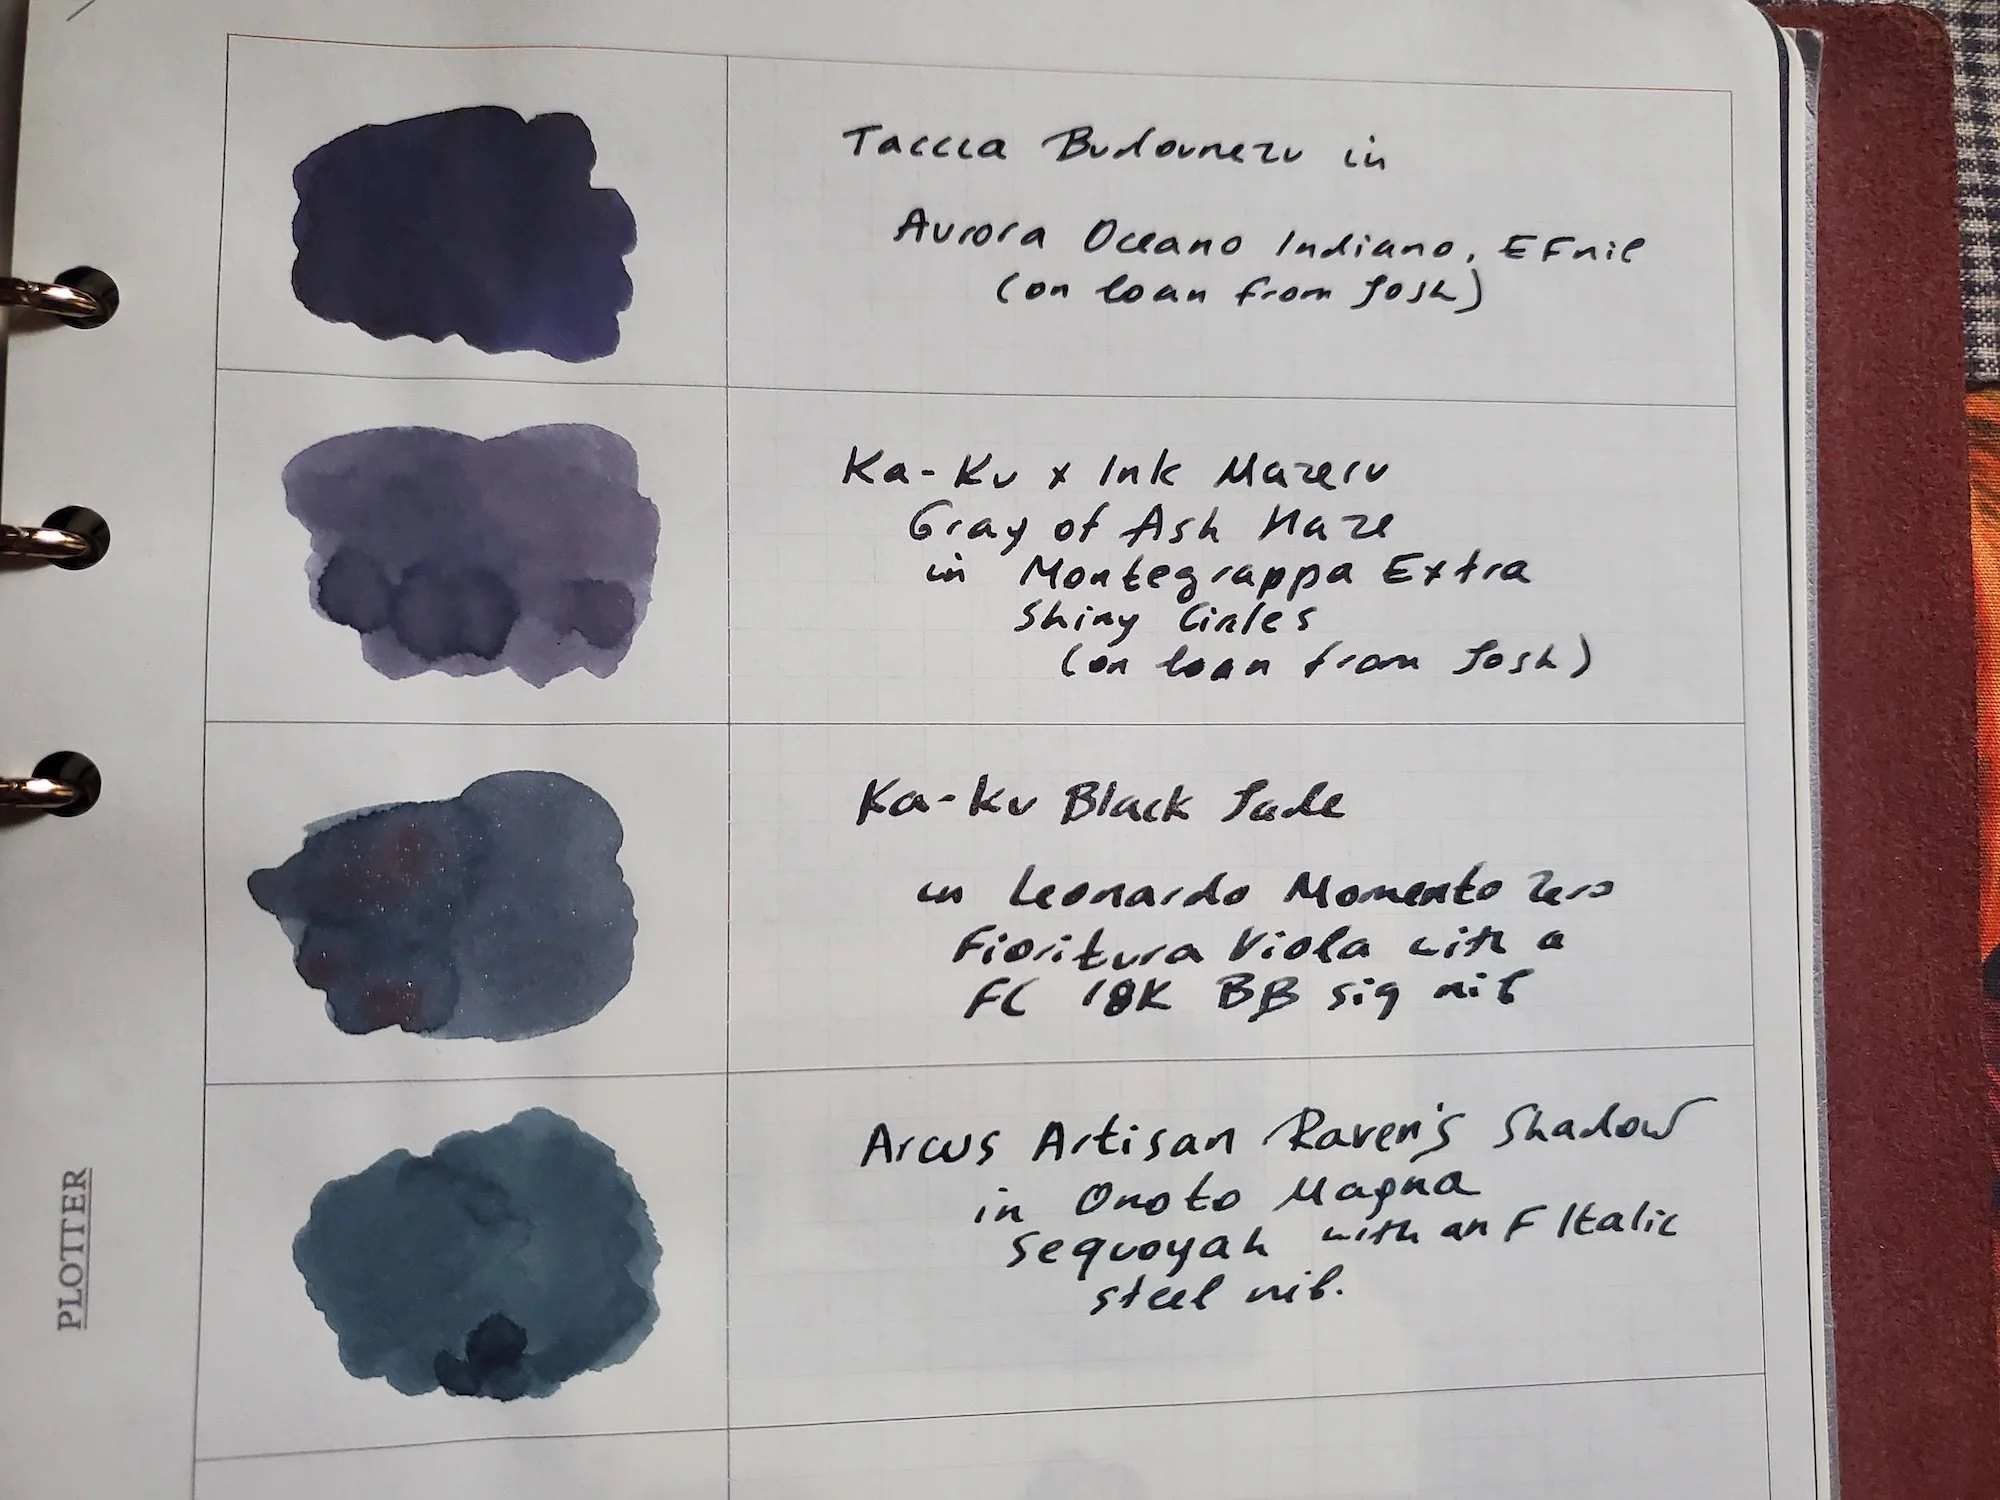 Taccia Budounezu in
Aurora Oceano Indiano, EF nib
(on loan from Josh)
Ka-Ku x Ink Mazeru
Gray of Ash Haze
in Montegrappa Extra
Shiny Circles
(on loan from Josh)
Ka-Ku Black Jade
in Leonardo Momento Zero
Fioritura Viola with a
FC 18K BB sig nib
Arcus Artisan Raven's Shadow
in Onoto Magna
Sequoyah with an F Italic
steel nib.
PLOTTER